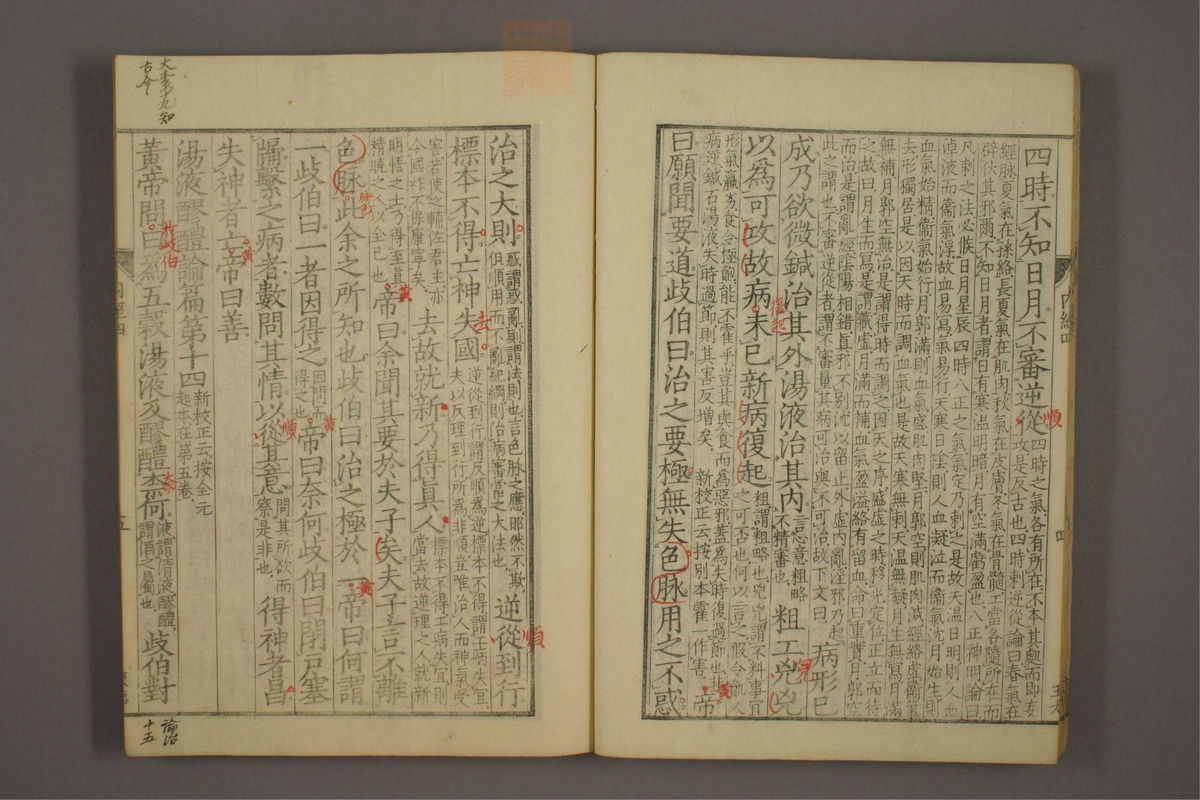 四時不知日月不審逆從四時之氣各有所在不本其處而即妄
攻是反古也四時刺逆從論曰春氣在
經脉夏氣在孫絡長夏氣在肌肉秋氣在皮膚冬氣在骨髓工當各隨所在而
辟伏其邪爾不知日月者謂日有寒溫明暗月有空滿虧盈也八正神明論曰
凡刺之法必候日月星辰四時八正之氣氣定乃刺之是故天溫日明則人血
淖液而衞氣浮故血易寫氣易行天寒日陰則人血凝泣而衞氣沈月始生則
血氣始精衞氣始行月郭滿則血氣盛肌肉堅月郭空則肌肉減經絡虛衞氣
去形獨居是以因天時而調血氣也是故天寒無刺天溫無疑月生無寫月滿
無補月郭空無治是謂得時而調之因天之序盛虛之時移光定位正立而待
之故曰月生而寫是謂藏虛月滿而補血氣盈溢絡有留血命曰重實月郭空
而治是謂亂經陰陽相錯真邪不別沈以留止外虛內亂淫邪乃起
此之謂也不審逆從者謂不審量其病可治與不可治故下文曰病形已
成乃欲微鍼治其外湯液治其內言心意粗略不精審也粗工兇兇
以爲可攻故病未已新病復起粗謂粗略也兇兇謂不料事宜之可否也何以言之假令飢人
形氣羸劣食令極飽能不霍乎豈其與食而爲惡邪蓋爲失時復過節也非
病逆鍼石湯液失時過節則其害反增矣新校正云按別本霍一作害帝
曰願聞要道歧伯曰治之要極無失色脉用之不惑
治之大則惑謂惑亂則謂法則也言色脉之應昭然不欺但順用而不亂紀綱則治病審當之大法也逆從到行
標本不得亡神失國逆從到行謂反順爲逆標本不得謂工病失宜夫以反理到行所爲非順豈唯治人而神氣受
害若使之輔佐君主亦令國祚不保康寧矣去故就新乃得眞人標本不得工病失宜則當去故逆理之人就新
明悟之士乃得至眞精曉之人以全己也帝曰余聞其要於夫子矣夫子言不離
色脉此余之所知也歧伯曰治之極於一帝曰何謂
一歧伯曰一者因得之因問而得之也帝曰奈何歧伯曰閉戶塞
牖繫之病者數問其情以從其意問其所欲而察是非也得神者昌
失神者亡帝曰善
湯液醪醴論篇第十四新校正云按全元起本在第五卷
黃帝問曰爲五穀湯液及醪醴柰何液謂清液醪醴謂酒之屬也歧伯對
內經四
四
五
順
復起
兇
黃
順
去
黃
黃
黃
順
黃
於歧伯
奈
論治
十五